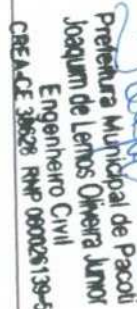 Prefeitura Municipal de Pacoti
Joaquim de Lemos Oliveira Junior
Engenheiro Civil
CREA-CE 38626 RNP 060026139-5